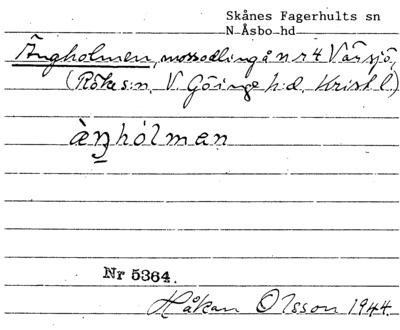 Skånes Fagerhults sn
N Åsbo hd
Ängholmen, mossodling å nr 4 Vårsjö,
(Röke s:n, V. Göinge h:d, Krist l.)
àŋhólmen
Nr 5364.
Håkan Olsson 1944.